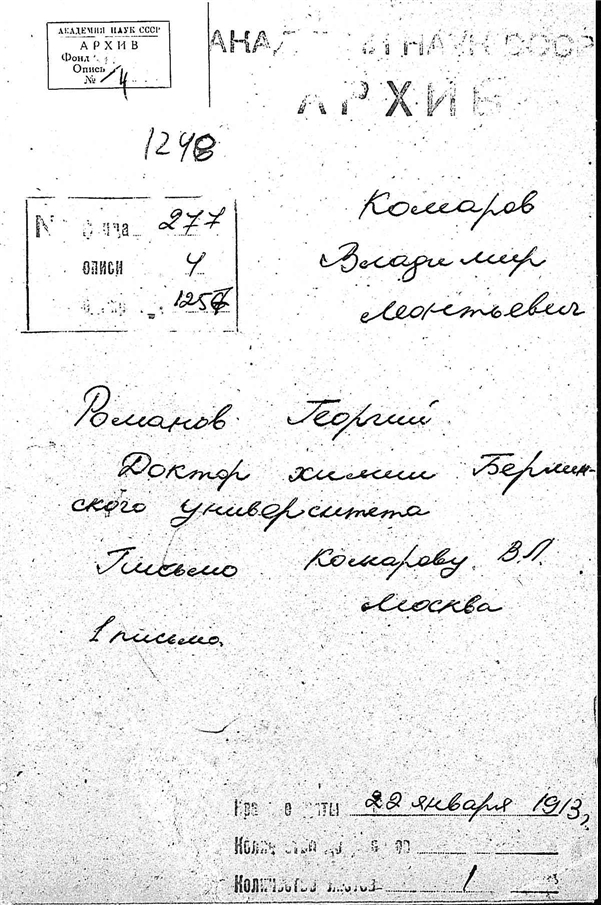 АКАДЕМИЯ НАУК СССР
АРХИВ
Фонд
Опись
№ 4
НАУК СССР
АРХИВ
1248
№ 277
описи 4
Комаров
Владимир
Леонтьевич
Романов Георгий
Доктор химии Берлин-
ского университета
Письмо Комарову В.Л.
Москва
1 письмо.
22 января 1913 г.
Количество
Количество листов 1